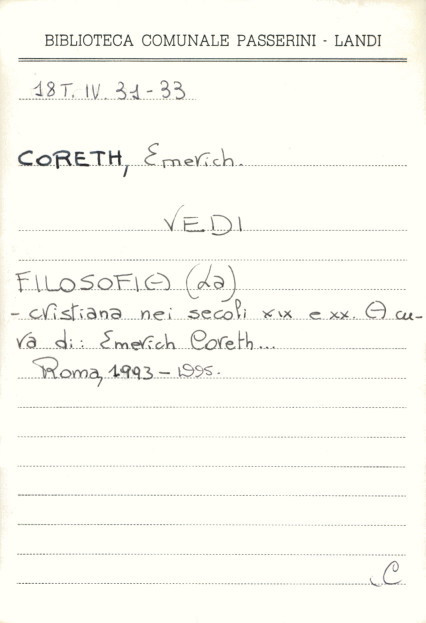 BIBLIOTECA COMUNALE PASSERINI - LANDI
18T. IV. 31-33
CORETH, Emerich.
VEDI
FILOSOFIA (La)
- cristiana nei secoli XIX e XX. A cu-
ra di: Emerich Coreth...
Roma, 1993 - 1995.
C